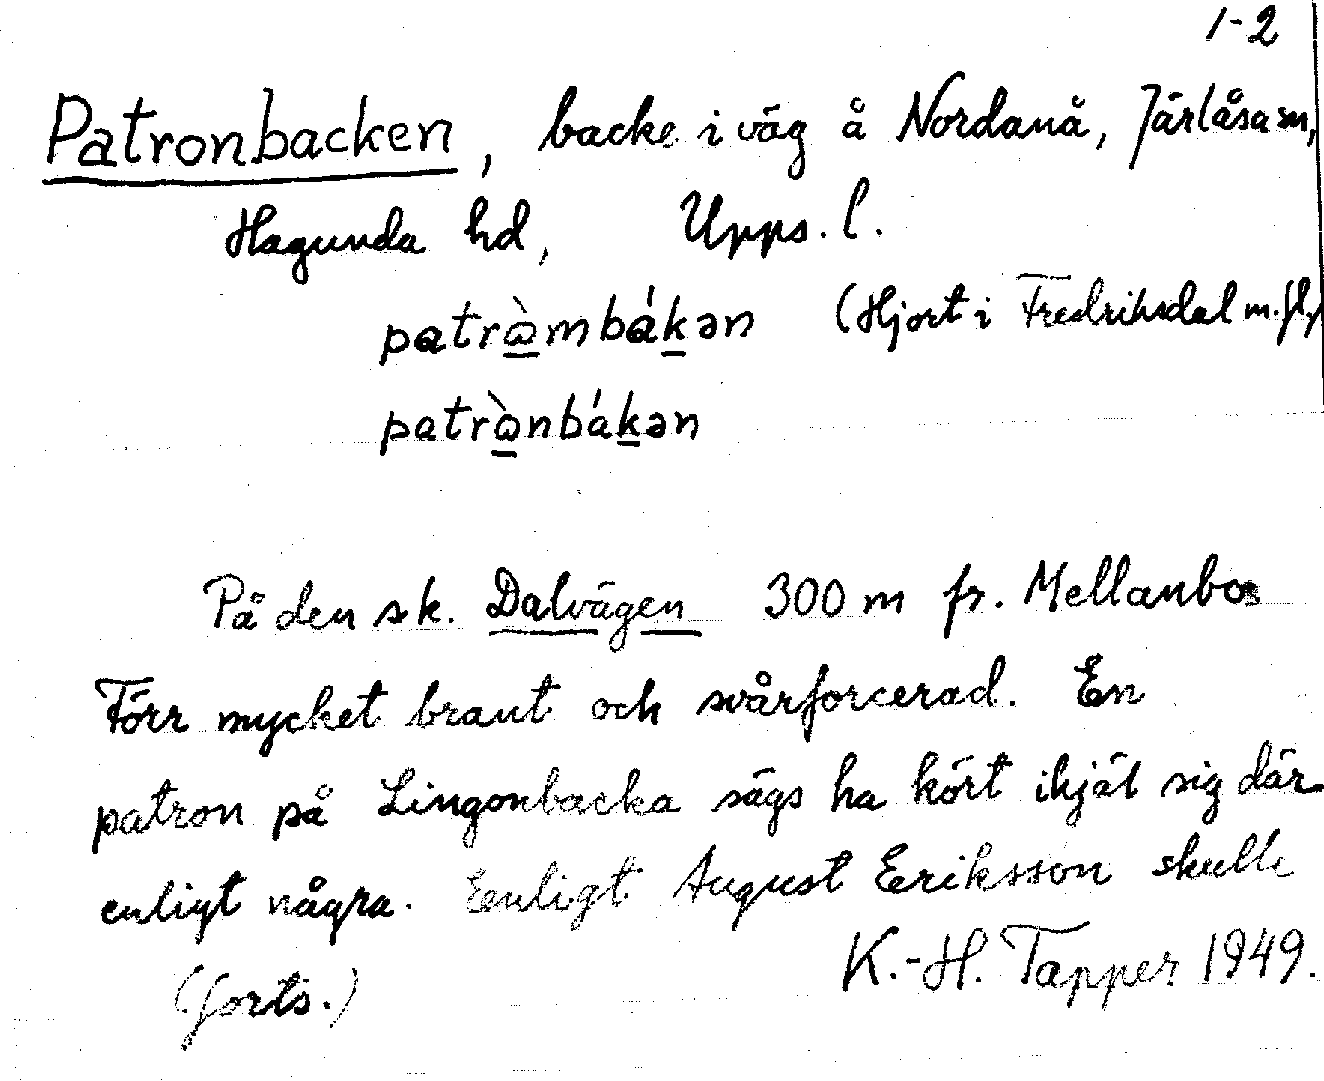 1-2
Patronbacken, backe i väg å Nordanå, Järlåsa sn,
Hagunda hd, Upps. l.
patrὼmbákən (Hjort i Fredriksdal m.fl.)
patrὼnbákən
På den sk. Dalvägen 300 m fr. Mellanbo
Förr mycket brant och svårforcerad. En
patron på Lingonbacka sägs ha kört ihjäl sig där
enligt några. Enligt August Eriksson skulle
(forts.) K.-H. Tapper 1949.